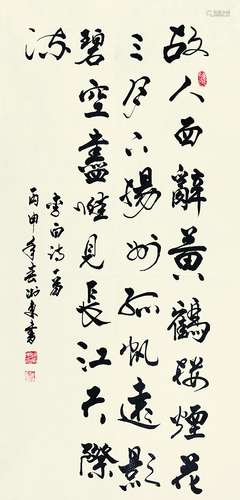 故人西辭黃鶴楼煙花
三月下揚州孤帆遠影
碧空盡唯見長江天際
流
李白诗一首
丙申年春東書